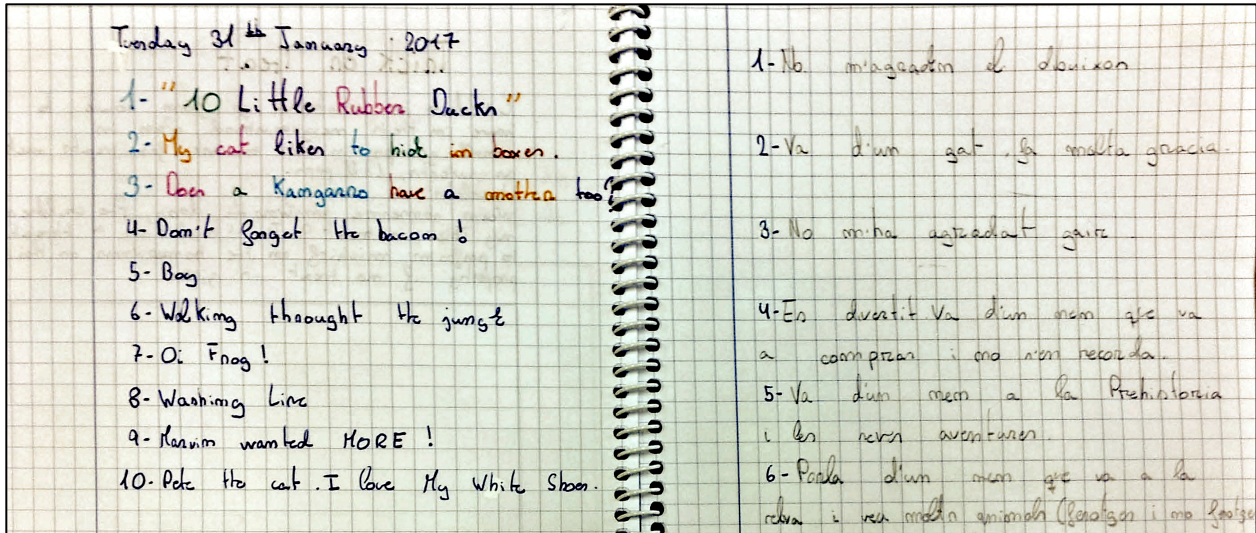 Tuesday 31th January 2017
1- "10 Little Rubber Ducks"
2- My cat likes to hide in boxes.
3- Does a Kangaroo have a mother too?
4- Don't forget the bacon !
5- Boy
6- Walking throught the jungle
7- Oi Frog !
8- Washing Line
9- Marvin wanted MORE !
10- Pete the cat . I love My White Shoes.
1- No m'agraden el dbuixos
2- Va d'un gat . fa molta gracia.
3- No m'ha agradat gaire
4- Es divertit Va d'un nen que va
a comprar i no s'en recorda.
5- Va d'un nen a la Prehistoria
i les seves aventures.
6- Parla d'un nen que va a la
selva i veu molts animals (ferotges i no ferotge